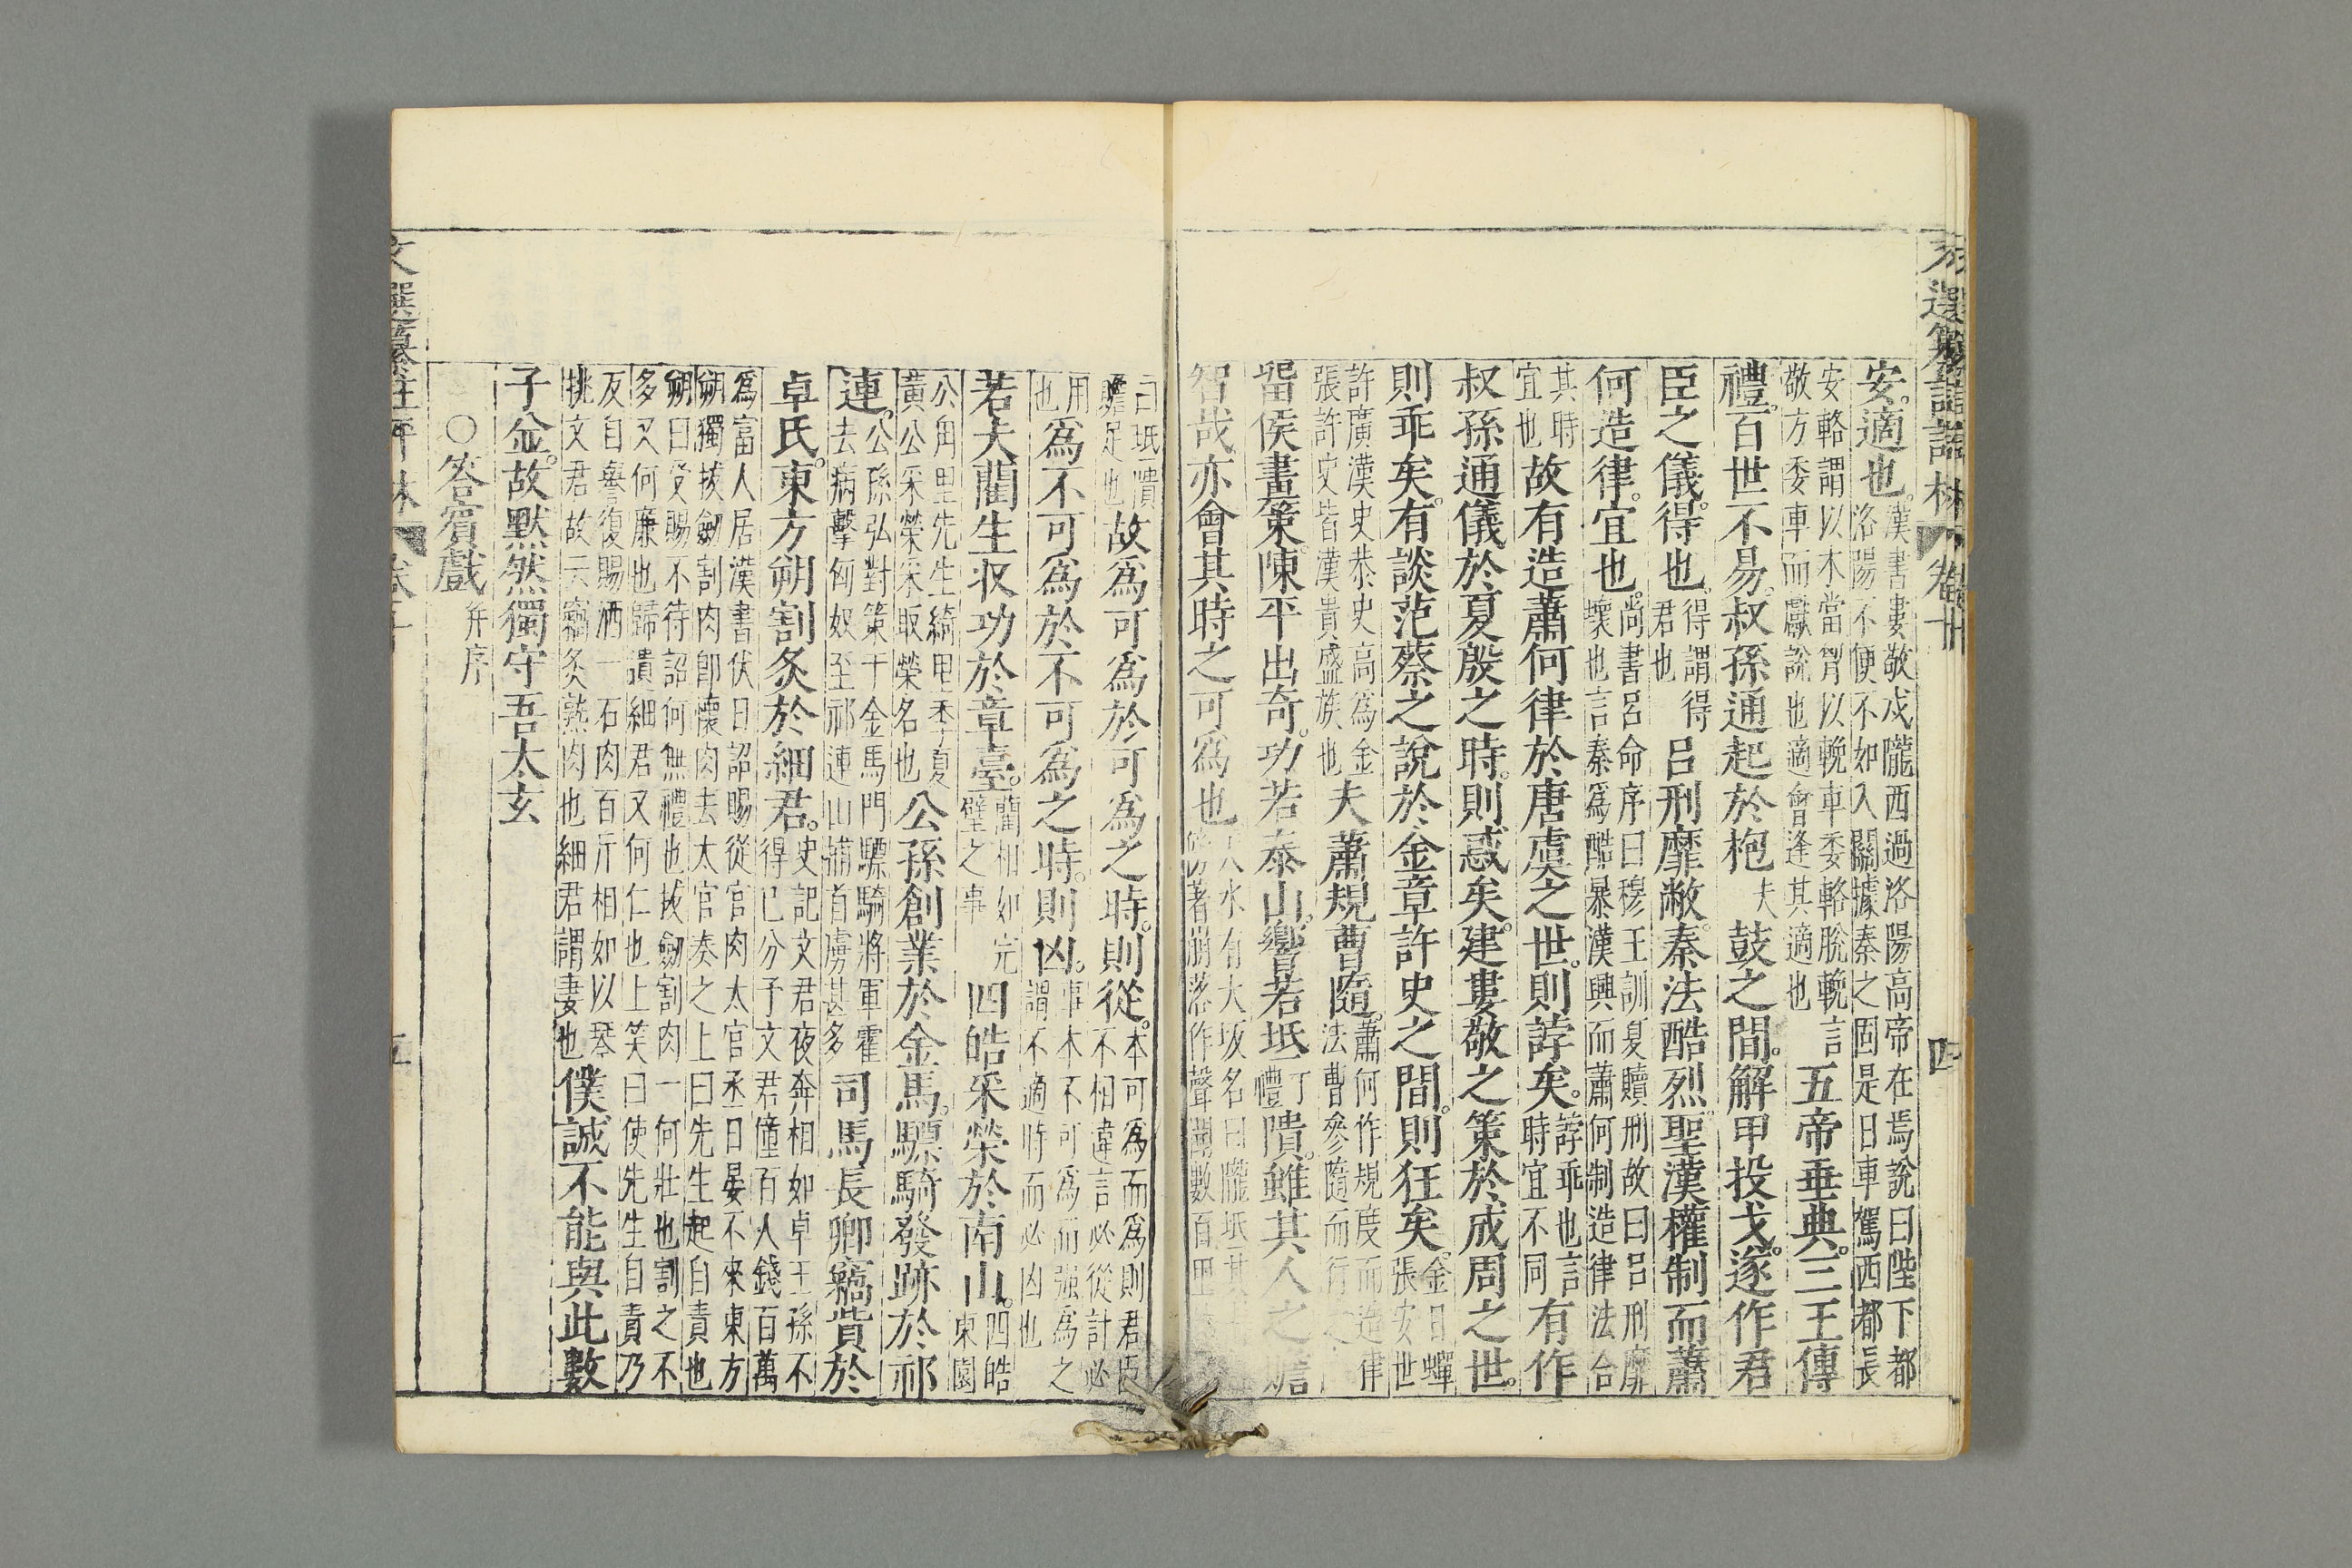 選纂註評林 卷廿 四
安。適也。漢書婁敬戍隴西過洛陽高帝在焉說曰陛下都洛陽不便不如入關據秦之固是日車駕西都長
安輅謂以木當胷以輓車委輅脫輓言敬方委車而獻說也適會逢其適也五帝垂典。三王傳
禮。百世不易。叔孫通起於枹夫鼓之間。解甲投戈。遂作君
臣之儀。得也。得謂得君也呂刑靡敝。秦法酷烈。聖漢權制而蕭
何造律。宜也。尚書呂命序曰穆王訓夏贖刑故曰呂刑靡壞也言秦爲酷暴漢興而蕭何制造律法合
其時宜也故有造蕭何律於唐虞之世。則誖矣。誖乖也言時宜不同有作
叔孫通儀於夏殷之時。則惑矣。建婁敬之策於成周之世。
則乖矣。有談范蔡之說於金章許史之間。則狂矣。金日蟬張安世
許廣漢史恭史高爲金張許史皆漢貴盛族也夫蕭規曹隨。蕭何作規度而造律法曹參隨而行
畱侯畫策。陳平出奇。功若泰山。嚮若坻丁禮隤。雖其人之
智哉亦會其時之可爲也水有大坂名曰隴坻其著崩落作聲聞數百里
曰坻隤贍足也故爲可爲於可爲之時。則從。本可爲而爲則君臣不相違言必從計必
用也爲不可爲於不可爲之時。則凶。事本不可爲而強爲之謂不適時而必凶也
若夫藺生収功於章臺。藺相如完璧之事四皓采榮於南山。四皓東園
公甪里先生綺里季夏黃公采榮采取榮名也公孫創業於金馬。驃騎發跡於祁
連。公孫弘對策于金馬門驃騎將軍霍去病擊匈奴至祁連山捕首虜甚多司馬長卿竊貲於
卓氏。東方朔割炙於細君。史記文君夜奔相如卓王孫不得已分予文君僮百人錢百萬
爲富人居漢書伏日詔賜從官肉太官丞日晏不來東方朔獨拔劒割肉卽懷肉去太官奏之上曰先生起自責也
朔曰受賜不待詔何無禮也拔劒割肉一何壯也割之不多又何廉也歸遺細君又何仁也上笑曰使先生自責乃
反自譽復賜酒一石肉百斤相如以琴挑文君故云竊炙熟肉也細君謂妻也僕誠不能與此數
子金。故默然獨守吾太玄
○答賓戲并序
文選纂註評林